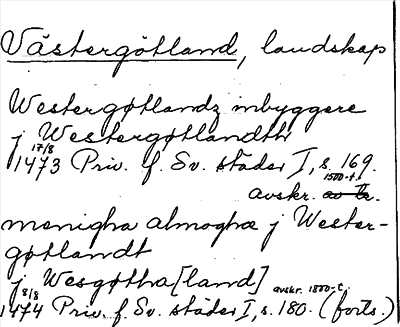 Västergötland, landskap
Westergøtlandz inbyggere
j Westergøtlandh
17/8
1473 Priv. f. Sv. städer I, s. 169.
avskr. 1500-t.
menigha almoghæ j Wester-
gøtlandt
j Wesgøtha[land]
8/8
1474 Priv. f. Sv. städer I, s. 180. avskr. 1800-t. (forts.)